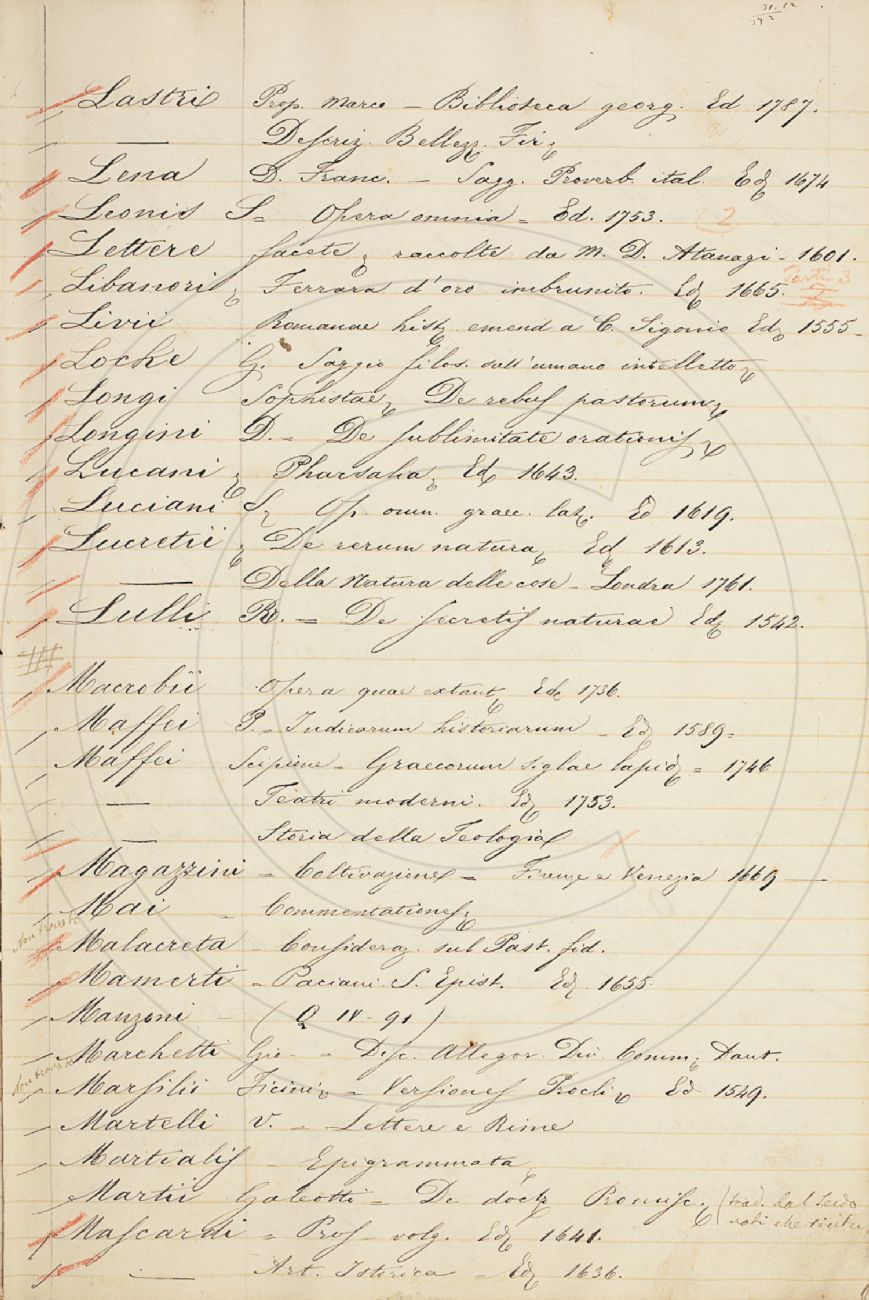 Lastri Prop. Marco – Biblioteca georg. Ed 1787.
— Descriz. Bellezz. Fir.
Lena D. Franc. – Sagg. Proverb. ital. Ed. 1674
Leonis S = Opera omnia = Ed. 1753. (2
Lettere facete, raccolte da M. D. Atanagi – 1601.
Libanori, Ferrara d'oro imbrunito. Ed. 1665. 3
Livii Romanae hist. emend a C. Sigonio Ed. 1555 –
Locke G. Saggio filos. sull'umano intelletto.
Longi Sophistae, De rebus pastorum,
Longini D. = De sublimitate orationis,
Lucani, Pharsalia, Ed. 1643.
Luciani S. Op. omn. graec. lat. Ed 1619.
Lucretii, De rerum natura, Ed. 1613.
— Della Natura delle cose – Londra 1761.
Lulli R. = De secretis naturae Ed. 1542.
Macrobii Opera quae extant, Ed. 1736.
Maffei P. = Indicarum historiarum – Ed. 1589 =
Maffei Scipione – Graecorum siglae lapid. = 1746
— Teatri moderni. Ed. 1753.
— Storia della Teologia
Magazzini = Coltivazione = Firenze e Venezia 1669 —
Mai – Commentationes,
Non trovato
Malacreta – Consideraz. sul Past. fid.
Mamerti = Paciani. S. Epist. Ed. 1655.
Manzoni – (Q IV – 91)
Marchetti Gio – = Disc. Allegor. Div. Comm. Dant.
Non trovato
Marsilii Ficini, = Versiones Procli, Ed 1549.
Martelli V. = Lettere e Rime
Martialis – Epigrammata,
Martii Galeotti = De doct. Promisc. (trad. dal Serdonati che
Mascardi = Pros– volg. Ed. 1641.
— Art. Istorica = Ed. 1636.